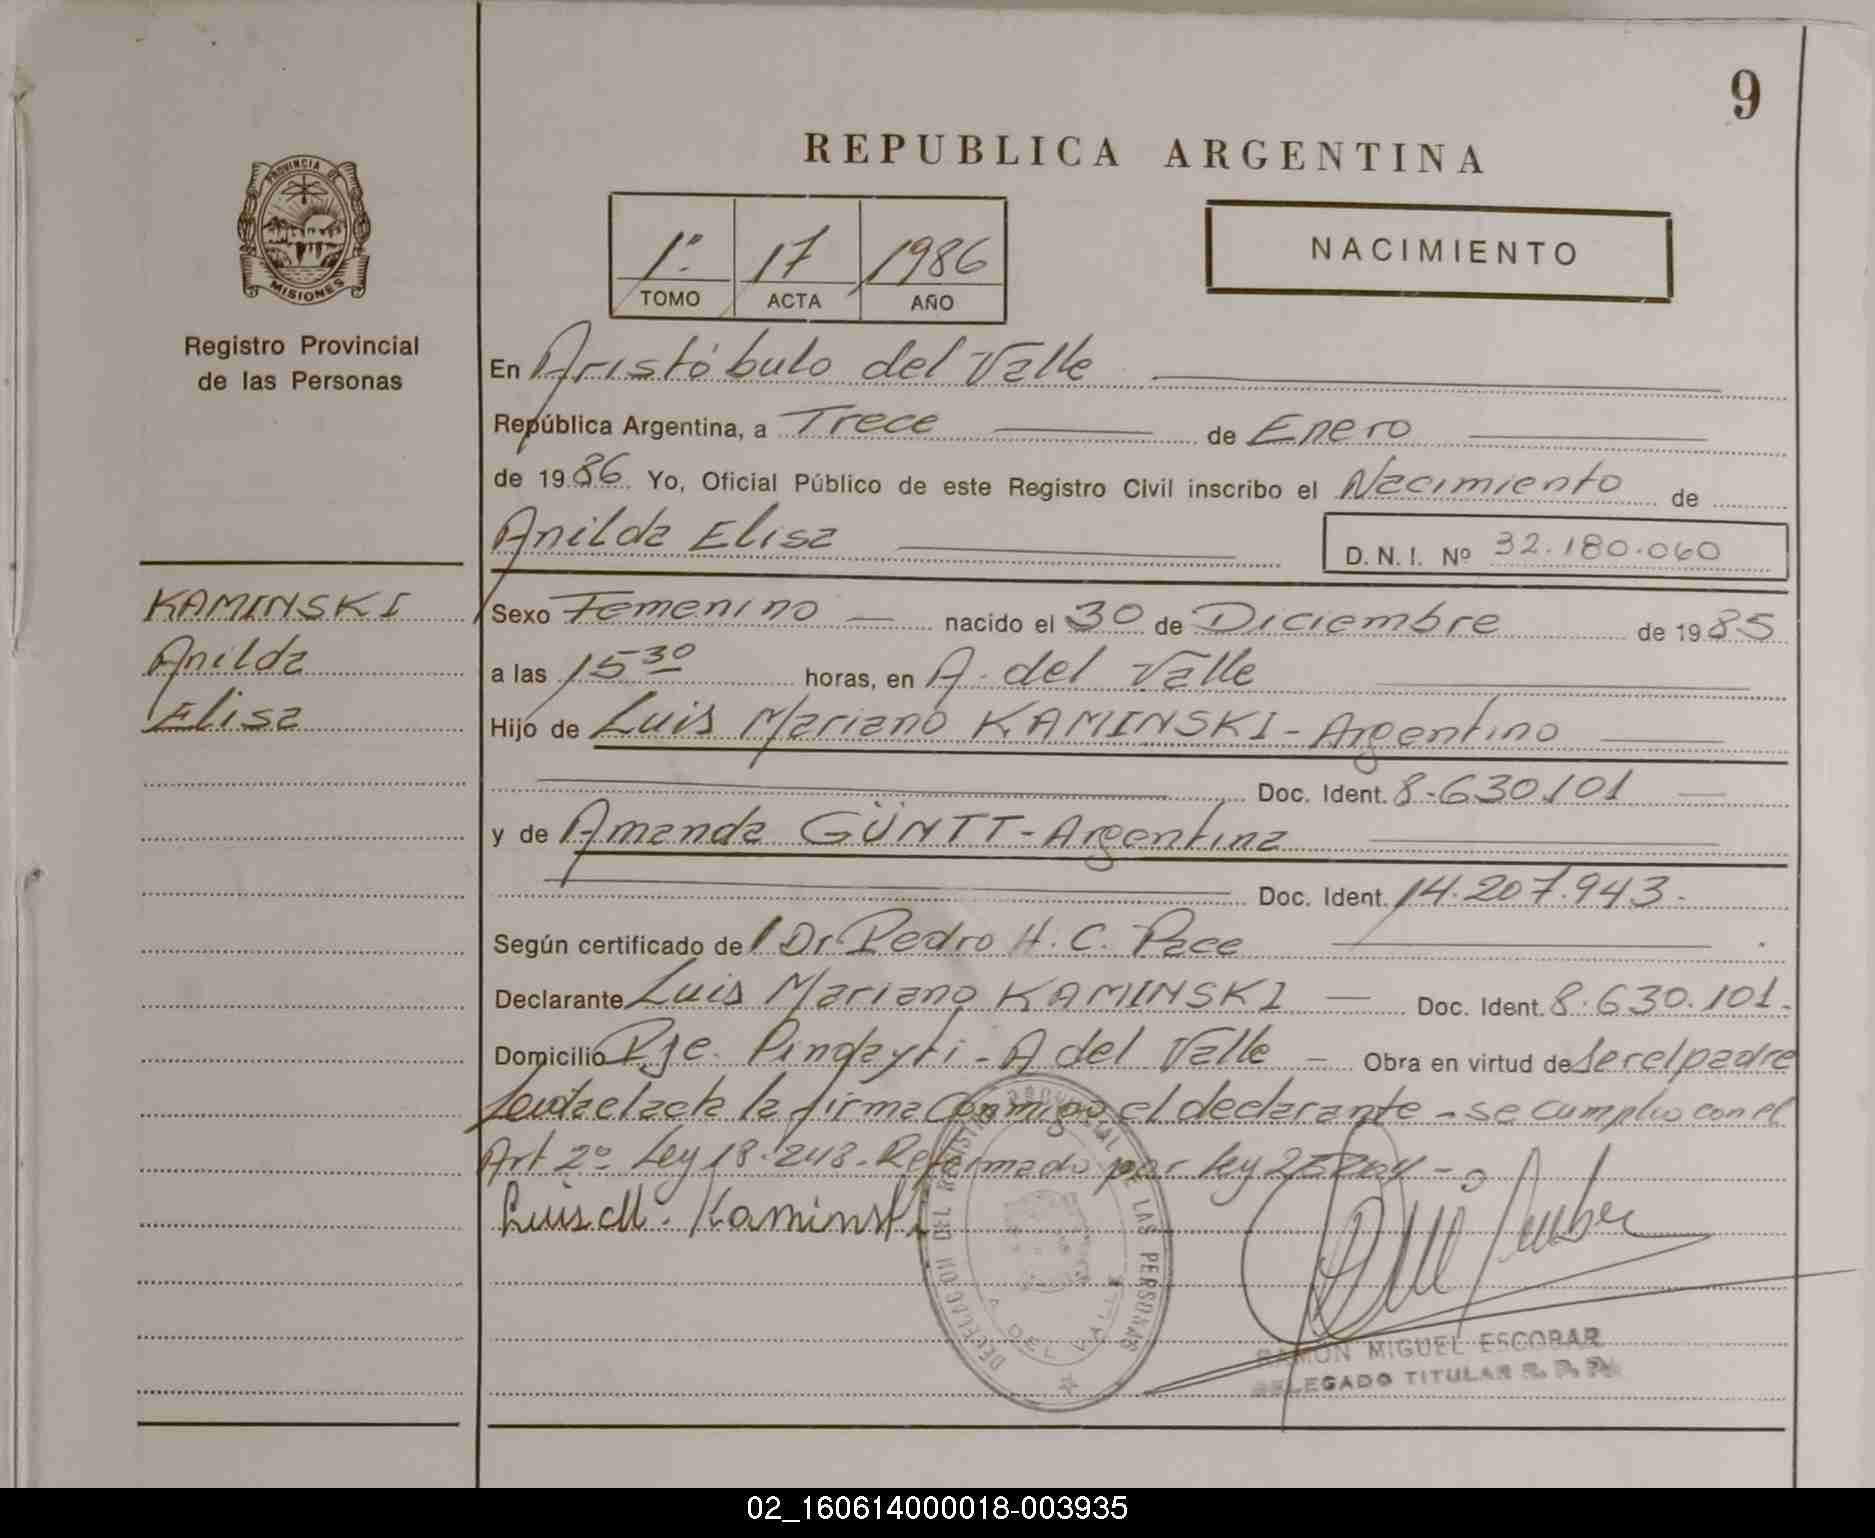 9
REPUBLICA ARGENTINA
PROVINCIA DE
MISIONES
Registro Provincial
de las Personas
1º 17 1986
TOMO ACTA AÑO
NACIMIENTO
En Aristóbulo del Valle
República Argentina, a Trece de Enero
de 1986 Yo, Oficial Público de este Registro Civil inscribo el Nacimiento de
Anilda Elisa D.N.I. Nº 32.180.060
KAMINSKI
Anilda
Elisa
Sexo Femenino nacido el 30 de Diciembre de 1985
a las 15 30 horas, en A. del Valle
Hijo de Luis Mariano KAMINSKI - Argentino
Doc. Ident. 8.630.101
y de Amanda GÜNTT - Argentina
Doc. Ident. 14.207.943.
Según certificado de Dr Pedro H. C. Pace
Declarante Luis Mariano KAMINSKI Doc. Ident. 8.630.101.
Domicilio Pje. Pindayti - A del Valle Obra en virtud de ser el padre
Leida el acta la firma Conmigo el declarante - se cumplio con el
Art 2º Ley 18.248. Reformado por ley
Luis M. Kaminski
DELEGACION DEL REGISTRO PROVINCIAL DE LAS PERSONAS
A. DEL VALLE
RAMON MIGUEL ESCOBAR
DELEGADO TITULAR R. P. P.
02_160614000018-003935